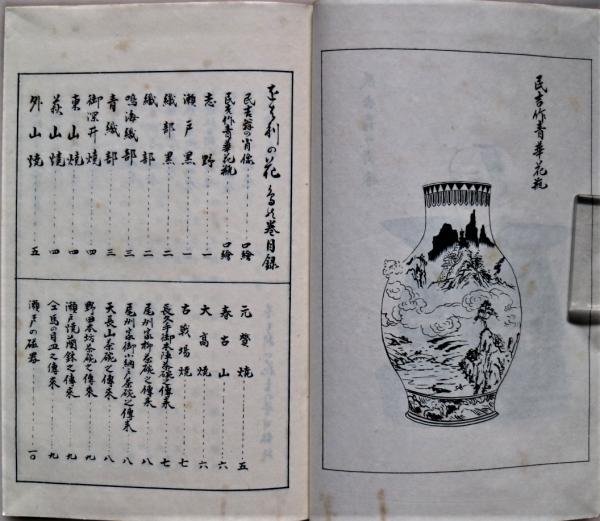 民吉作青華花瓶
をはりの花 鳥の巻目録
民吉翁の肖像 口繪
民吉作青華花瓶 口繪
志野 一
瀬戸黒 一
織部黒 二
織部 二
鳴海織部 三
青織部 三
御深井焼 四
東山焼 四
萩山焼 四
外山焼 五
元贇焼 五
春古山 六
大高焼 六
古戦場焼 七
長久手御本陣茶碗之傳来 七
尾州家御茶碗之傳来 八
尾州家御小納戸茶碗之傳来 八
天長山茶碗之傳来 八
野田本坊茶碗之傳来 九
瀬戸焼蘭鉢之傳来 九
馬の目皿之傳来 九
瀬戸の磁器 一〇